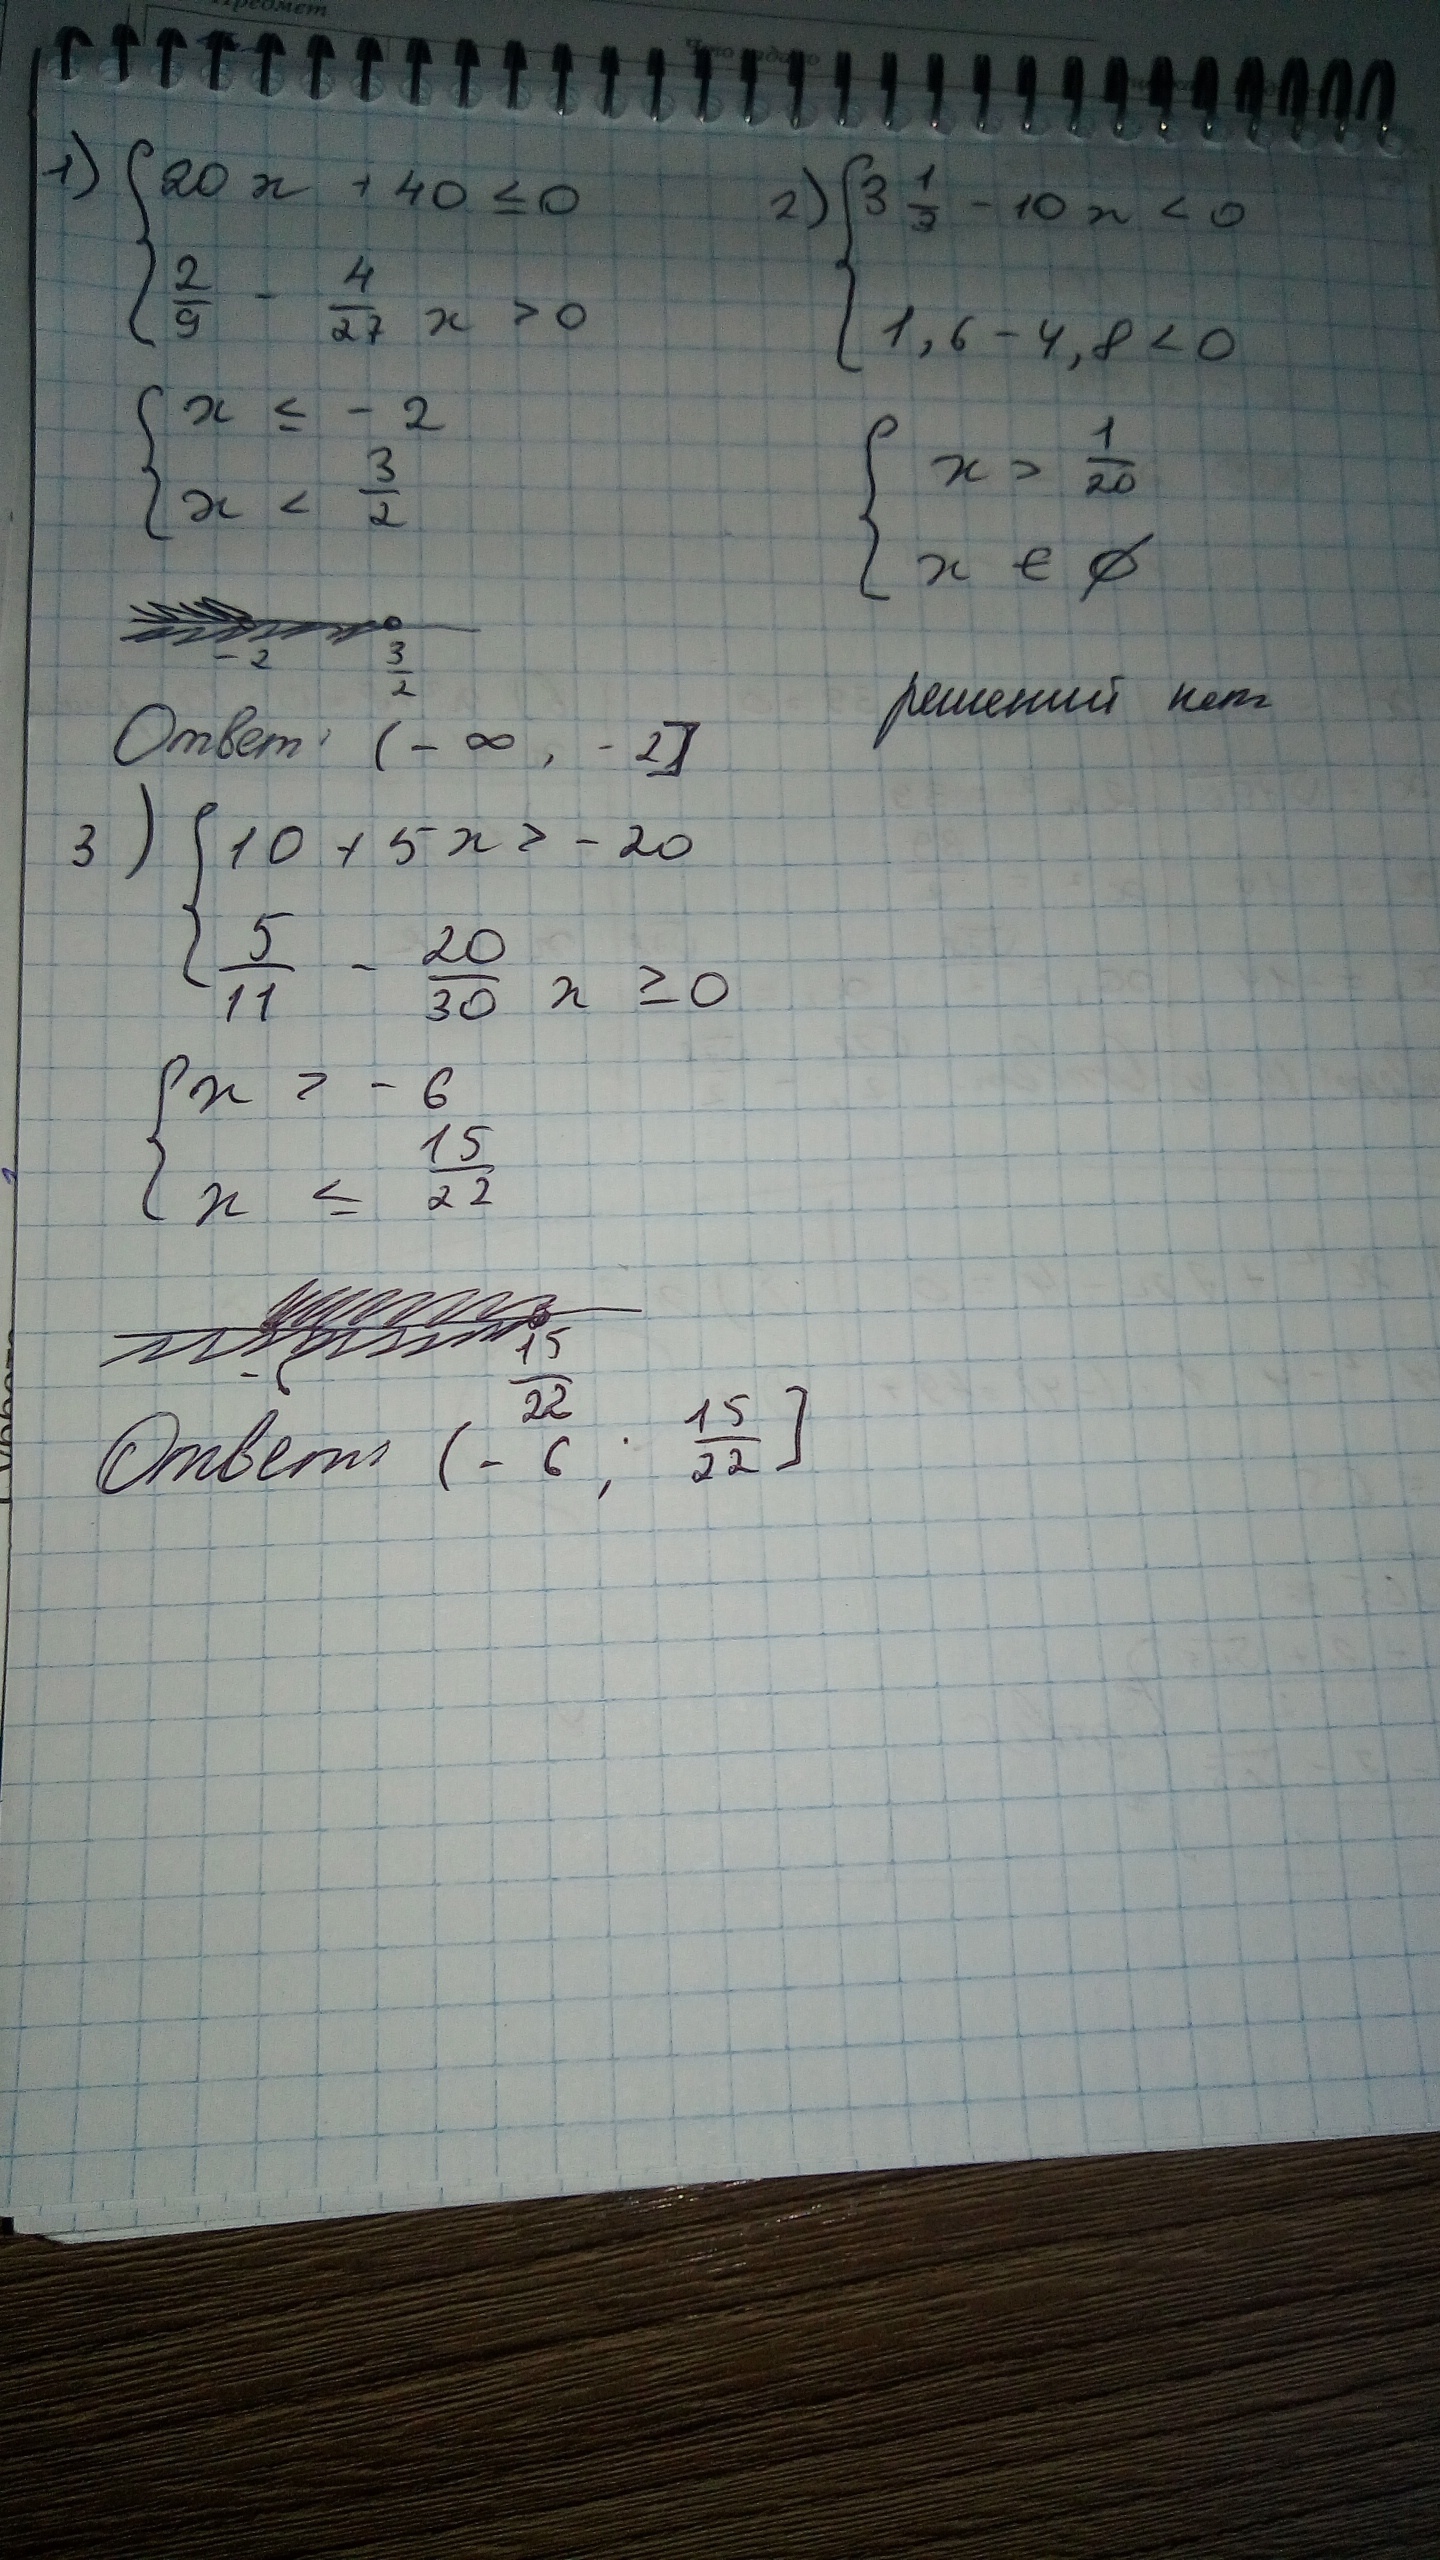 Предмет
Что задано
1) { 20x + 40 ≤ 0
2/9 - 4/27 x > 0
{ x ≤ -2
x < 3/2
-2 3/2
Ответ: (-∞, -2]
2) { 3 1/3 - 10x < 0
1,6 - 4,8 < 0
{ x > 1/20
x ∈ ∅
решений нет
3) { 10 + 5x > -20
5/11 - 20/30 x ≥ 0
{ x > -6
x ≤ 15/22
-6 15/22
Ответ: (-6; 15/22]